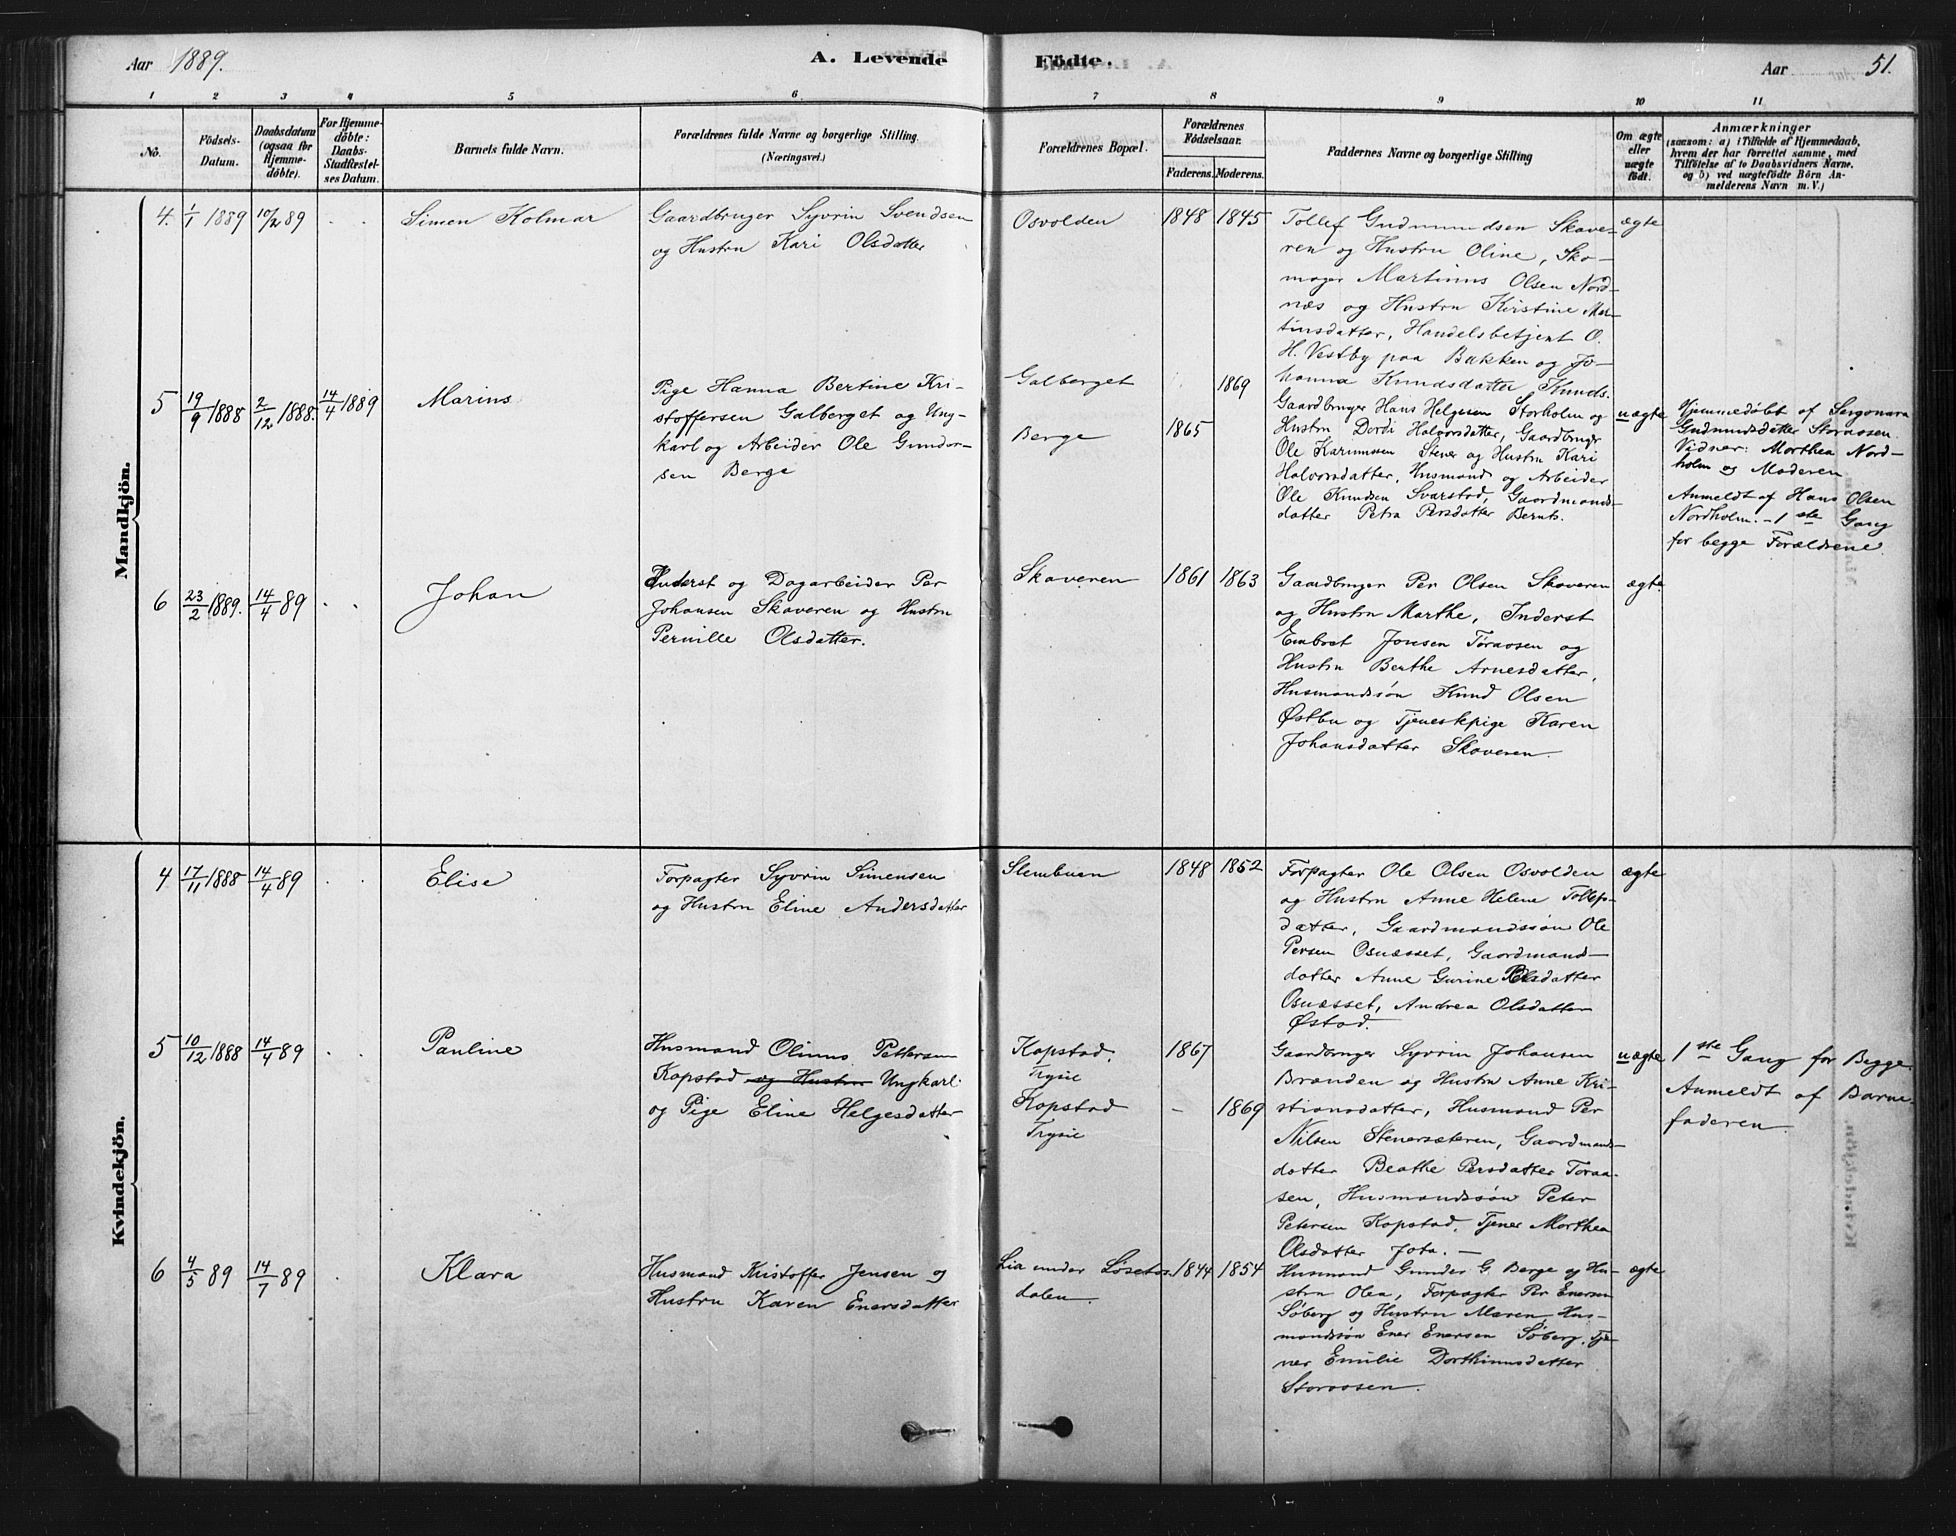 Aar 1889.
A. Levende
Födte.
Aar
51.
1 2 3 4 5 6 7 8 9 10 11
No.
Födsels-Datum.
Daabsdatum (ogsaa for Hjemmedöbte).
For Hjemmedöbte: Daabs-Stadfæstelses Datum.
Barnets fulde Navn.
Forældrenes fulde Navne og borgerlige Stilling.
(Næringsvei.)
Forældrenes Bopæl.
Forældrenes Födselsaar.
Faderens. Moderens.
Faddernes Navne og borgerlige Stilling
Om ægte eller uægte födt.
Anmærkninger
(saasom: a) i Tilfælde af Hjemmedaab,
hvem der har forrettet samme, med
Tilföielse af to Daabsvidners Navne.
og b) ved uægtefödte Börn An-
melderens Navn m. V.)
Mandkjön.
4. 1/1 1889 10/2 89 Simen Kolmar
Gaardbruger Syvrin Svendsen
og Hustru Kari Olsdatter
Osvolden 1848 1845
Tollef Gudmundsen Skave-
ren og Hustru Oline, Sko-
mager Martinus Olsen Nord-
næs og Hustru Kristine Mar-
tinsdatter, Handelsbetjent O.
H. Vestby paa Bakken og Jo-
hanna Knudsdatter Knuds.
ægte
5 19/9 1888 2/12 1888. 14/4 1889 Marius
Pige Hanna Bertine Kri-
stoffersen Galberget og Ung-
karl og Arbeider Ole Gundor-
sen Berge
Galberget 1869
Berge 1865
Gaardbruger Hans Helgesen Storholm og
Hustru Dordi Halvorsdatter, Gaardbruger
Ole Karinussen Stener og Hustru Kari
Halvorsdatter, Husmand og Arbeider
Ole Knudsen Svarstad, Gaardmands-
datter Petra Persdatter Bernts.
uægte
Hjemmedøbt af
Gudmundsdatter Storaasen.
Vidner: Marthea Nord-
holm og Moderen
Anmeldt af Hans Olsen
Nordholm. - 1ste Gang
for begge Forældrene
6 23/2 1889. 14/4 89 Johan
Inderst og Dagarbeider Per
Johansen Skaveren og Hustru
Pernille Olsdatter.
Skaveren 1861 1863
Gaardbruger Per Olsen Skaveren
og Hustru Marthe, Inderst
Embret Jonsen Tøraasen og
Hustru Berthe Arnesdatter,
Husmandssøn Knud Olsen
Østbu og Tjenestepige Karen
Johansdatter Skaveren.
ægte
Kvindekjön.
4 17/11 1888 14/4 89 Elise
Forpagter Syvrin Simensen
og Hustru Eline Andersdatter
Slembuen 1848 1852
Forpagter Ole Olsen Osvolden
og Hustru Anne Helene Tollefs-
datter, Gaardmandssøn Ole
Persen Osnæsset, Gaardmands-
datter Anne Gurine Olsdatter
Osnæsset, Andrea Olsdatter
Østad.
ægte
5 10/12 1888 14/4 89 Pauline
Husmand Olinus Pettersen
Kopstad og Hustru Ungkarl
og Pige Eline Helgesdatter
Kopstad. 1867
Trysil
Kopstad - 1869
Trysil
Gaardbruger Syvrin Johansen
Brænden og Hustru Anne Kri-
stiansdatter, Husmand Per
Nilsen Stenersæteren, Gaardmands-
datter Beathe Persdatter Toraa-
sen, Husmandssøn Peter
Petersen Kopstad, Tjener Marthea
Olsdatter Jota. -
uægte
1ste Gang for Begge.
Anmeldt af Barne-
faderen.
6 4/5 89 14/7 89 Klara
Husmand Kristoffer Jensen og
Hustru Karen Enersdatter
Lia under Løseta-
dalen. 1844 1854
Husmand Gunder G. Berge og Hu-
stru Olea, Forpagter Per Enersen
Søberg og Hustru Maren, Hus-
mandssøn Ener Enersen Søberg, Tje-
ner Emilie Dorthinusdatter
Storaasen.
ægte